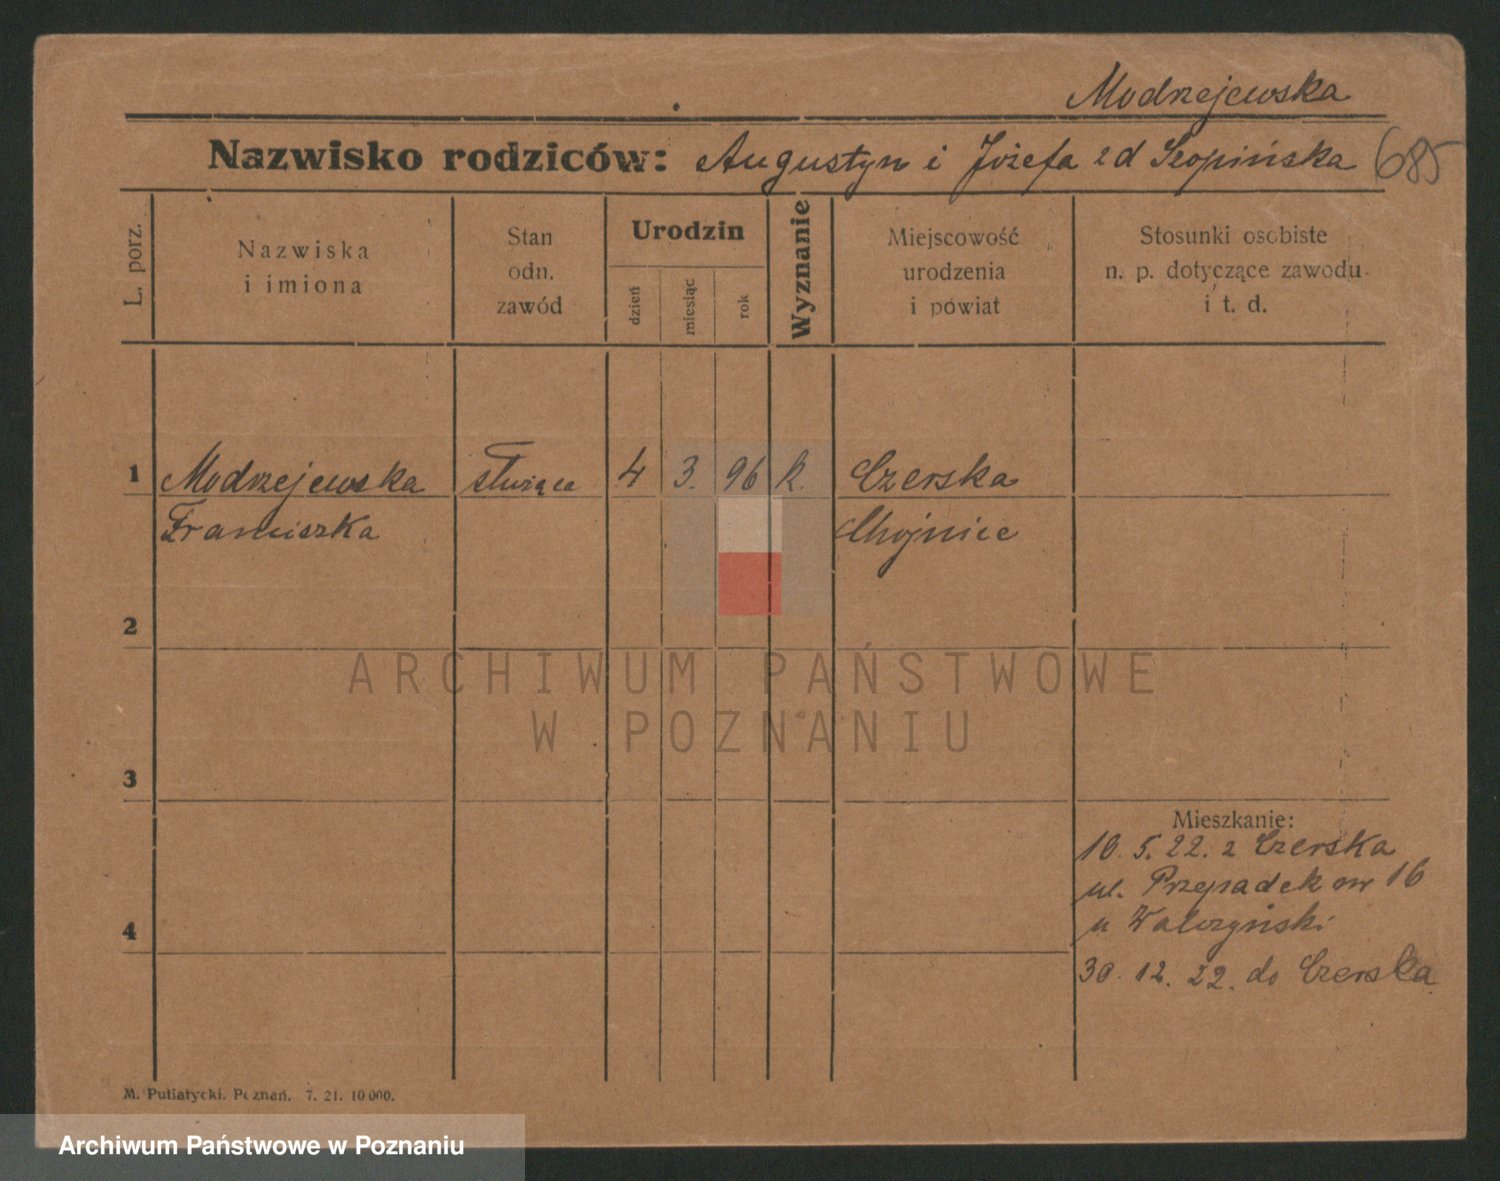 Modrzejewska
Nazwisko rodziców: Augustyn i Józefa zd Szopińska 685
L. porz.
Nazwiska
i imiona
Stan
odn.
zawód
Urodzin
dzień
miesiąc
rok
Wyznanie
Miejscowość
urodzenia
i powiat
Stosunki osobiste
n. p. dotyczące zawodu
i t. d.
1 Modrzejewska służąca 4 3. 96 k. Czerska
Franciszka Chojnice
2
ARCHIWUM PAŃSTWOWE
W POZNANIU
3
Mieszkanie:
10. 5. 22. z Czerska
ul. Przepadek nr 16
u Walczyński
4
30. 12. 22. do Czerska
M. Putiatycki. Poznań. 7. 21. 10 000.
Archiwum Państwowe w Poznaniu